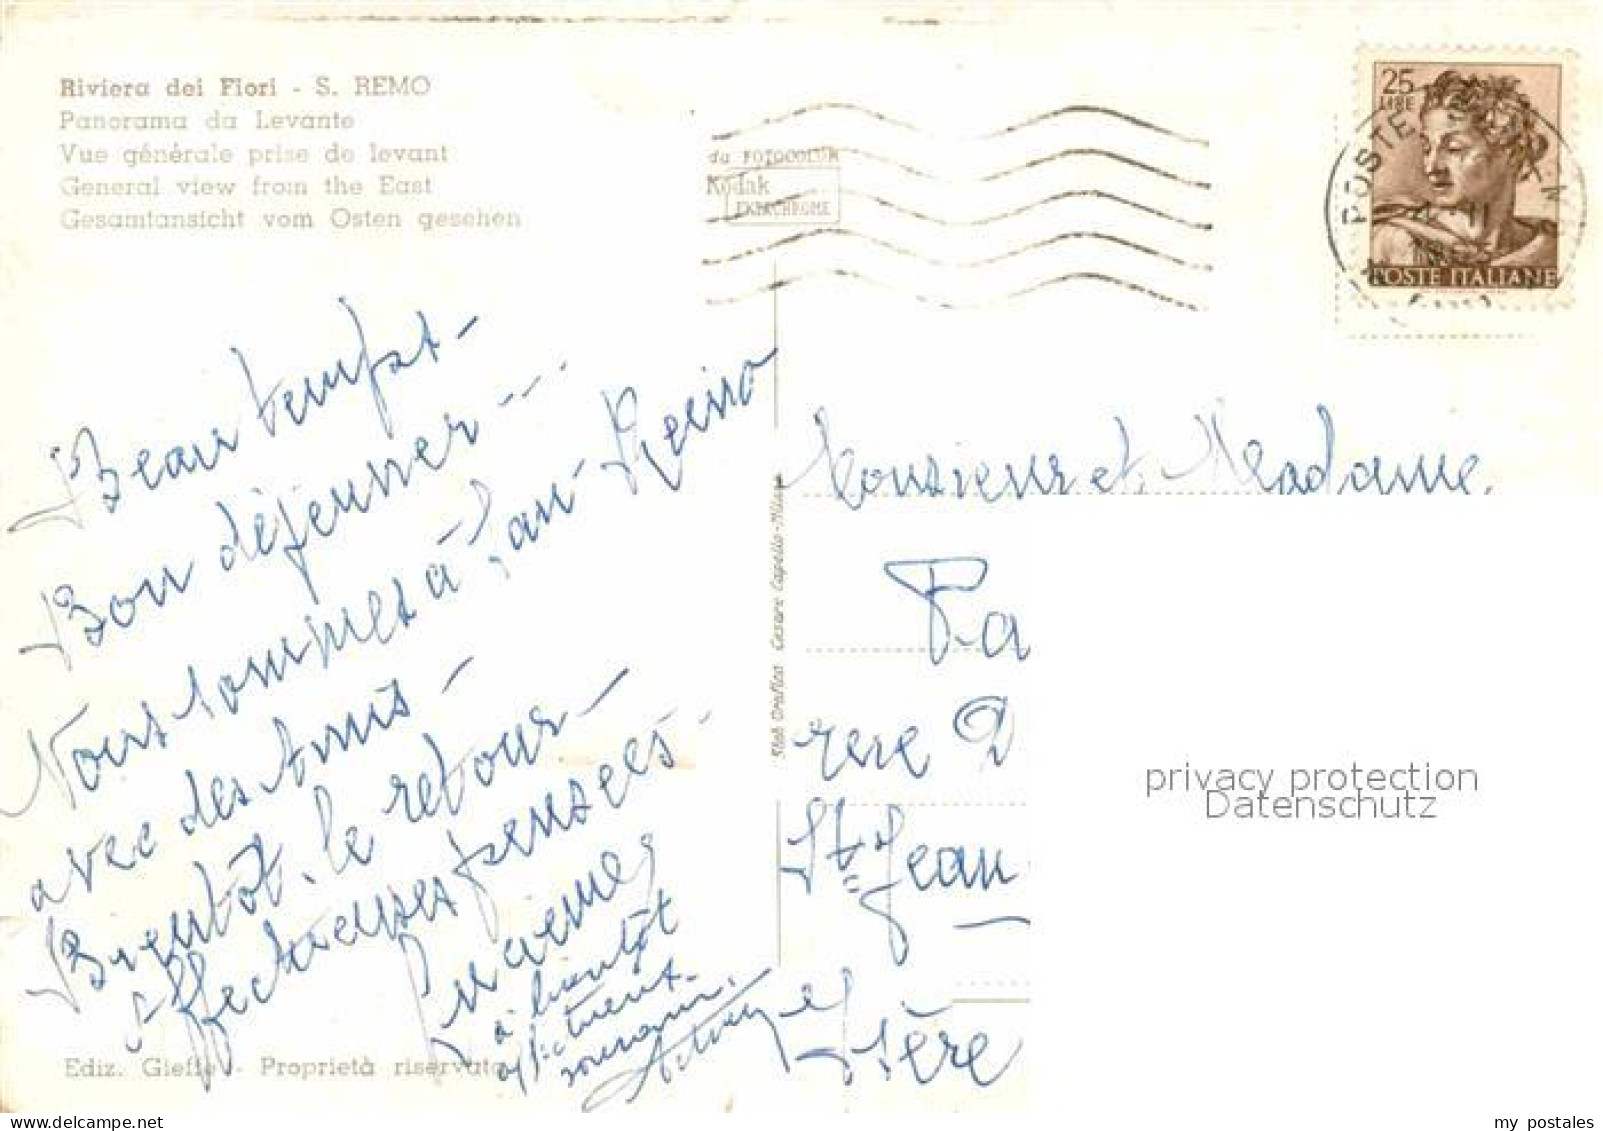 Riviera dei Fiori - S. REMO
Panorama da Levante
Vue générale prise de levant
General view from the East
Gesamtansicht vom Osten gesehen
da FOTOCOLOR
Kodak
EKTACHROME
25
LIRE
POSTE ITALIANE
Beau temps -
Bon déjeuner - ..
Nous sommes à San-Remo
avec des Amis -
Bientôt le retour -
Affectueuses pensées -
à bientôt
Stab. Grafico Cesare Capello - Milano
Monsieur et Madame
Pa
rere D
St Jean
Isère
Ediz. Gieffe - Proprietà riservata
privacy protection
Datenschutz
my postales